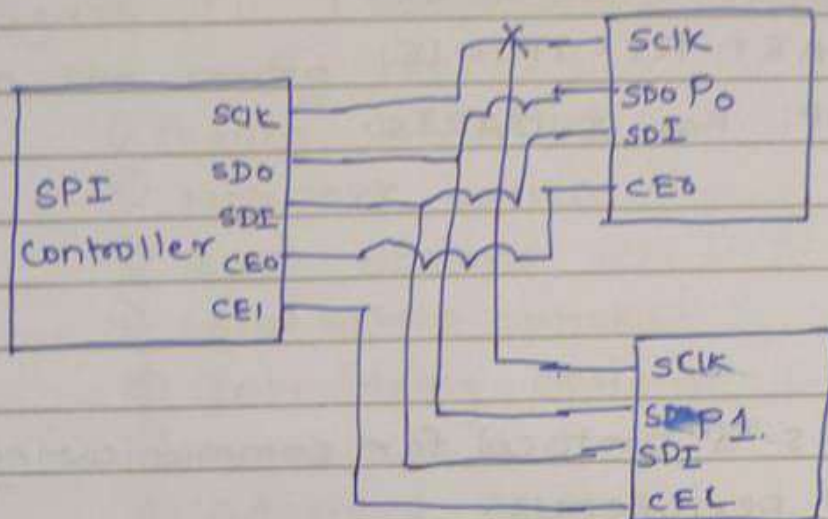 SPI
Controller
SCIK
SDO
SDI
CE0
CE1
SCIK
SDO P0
SDI
CE0
SCIK
P1.
SDI
CEL